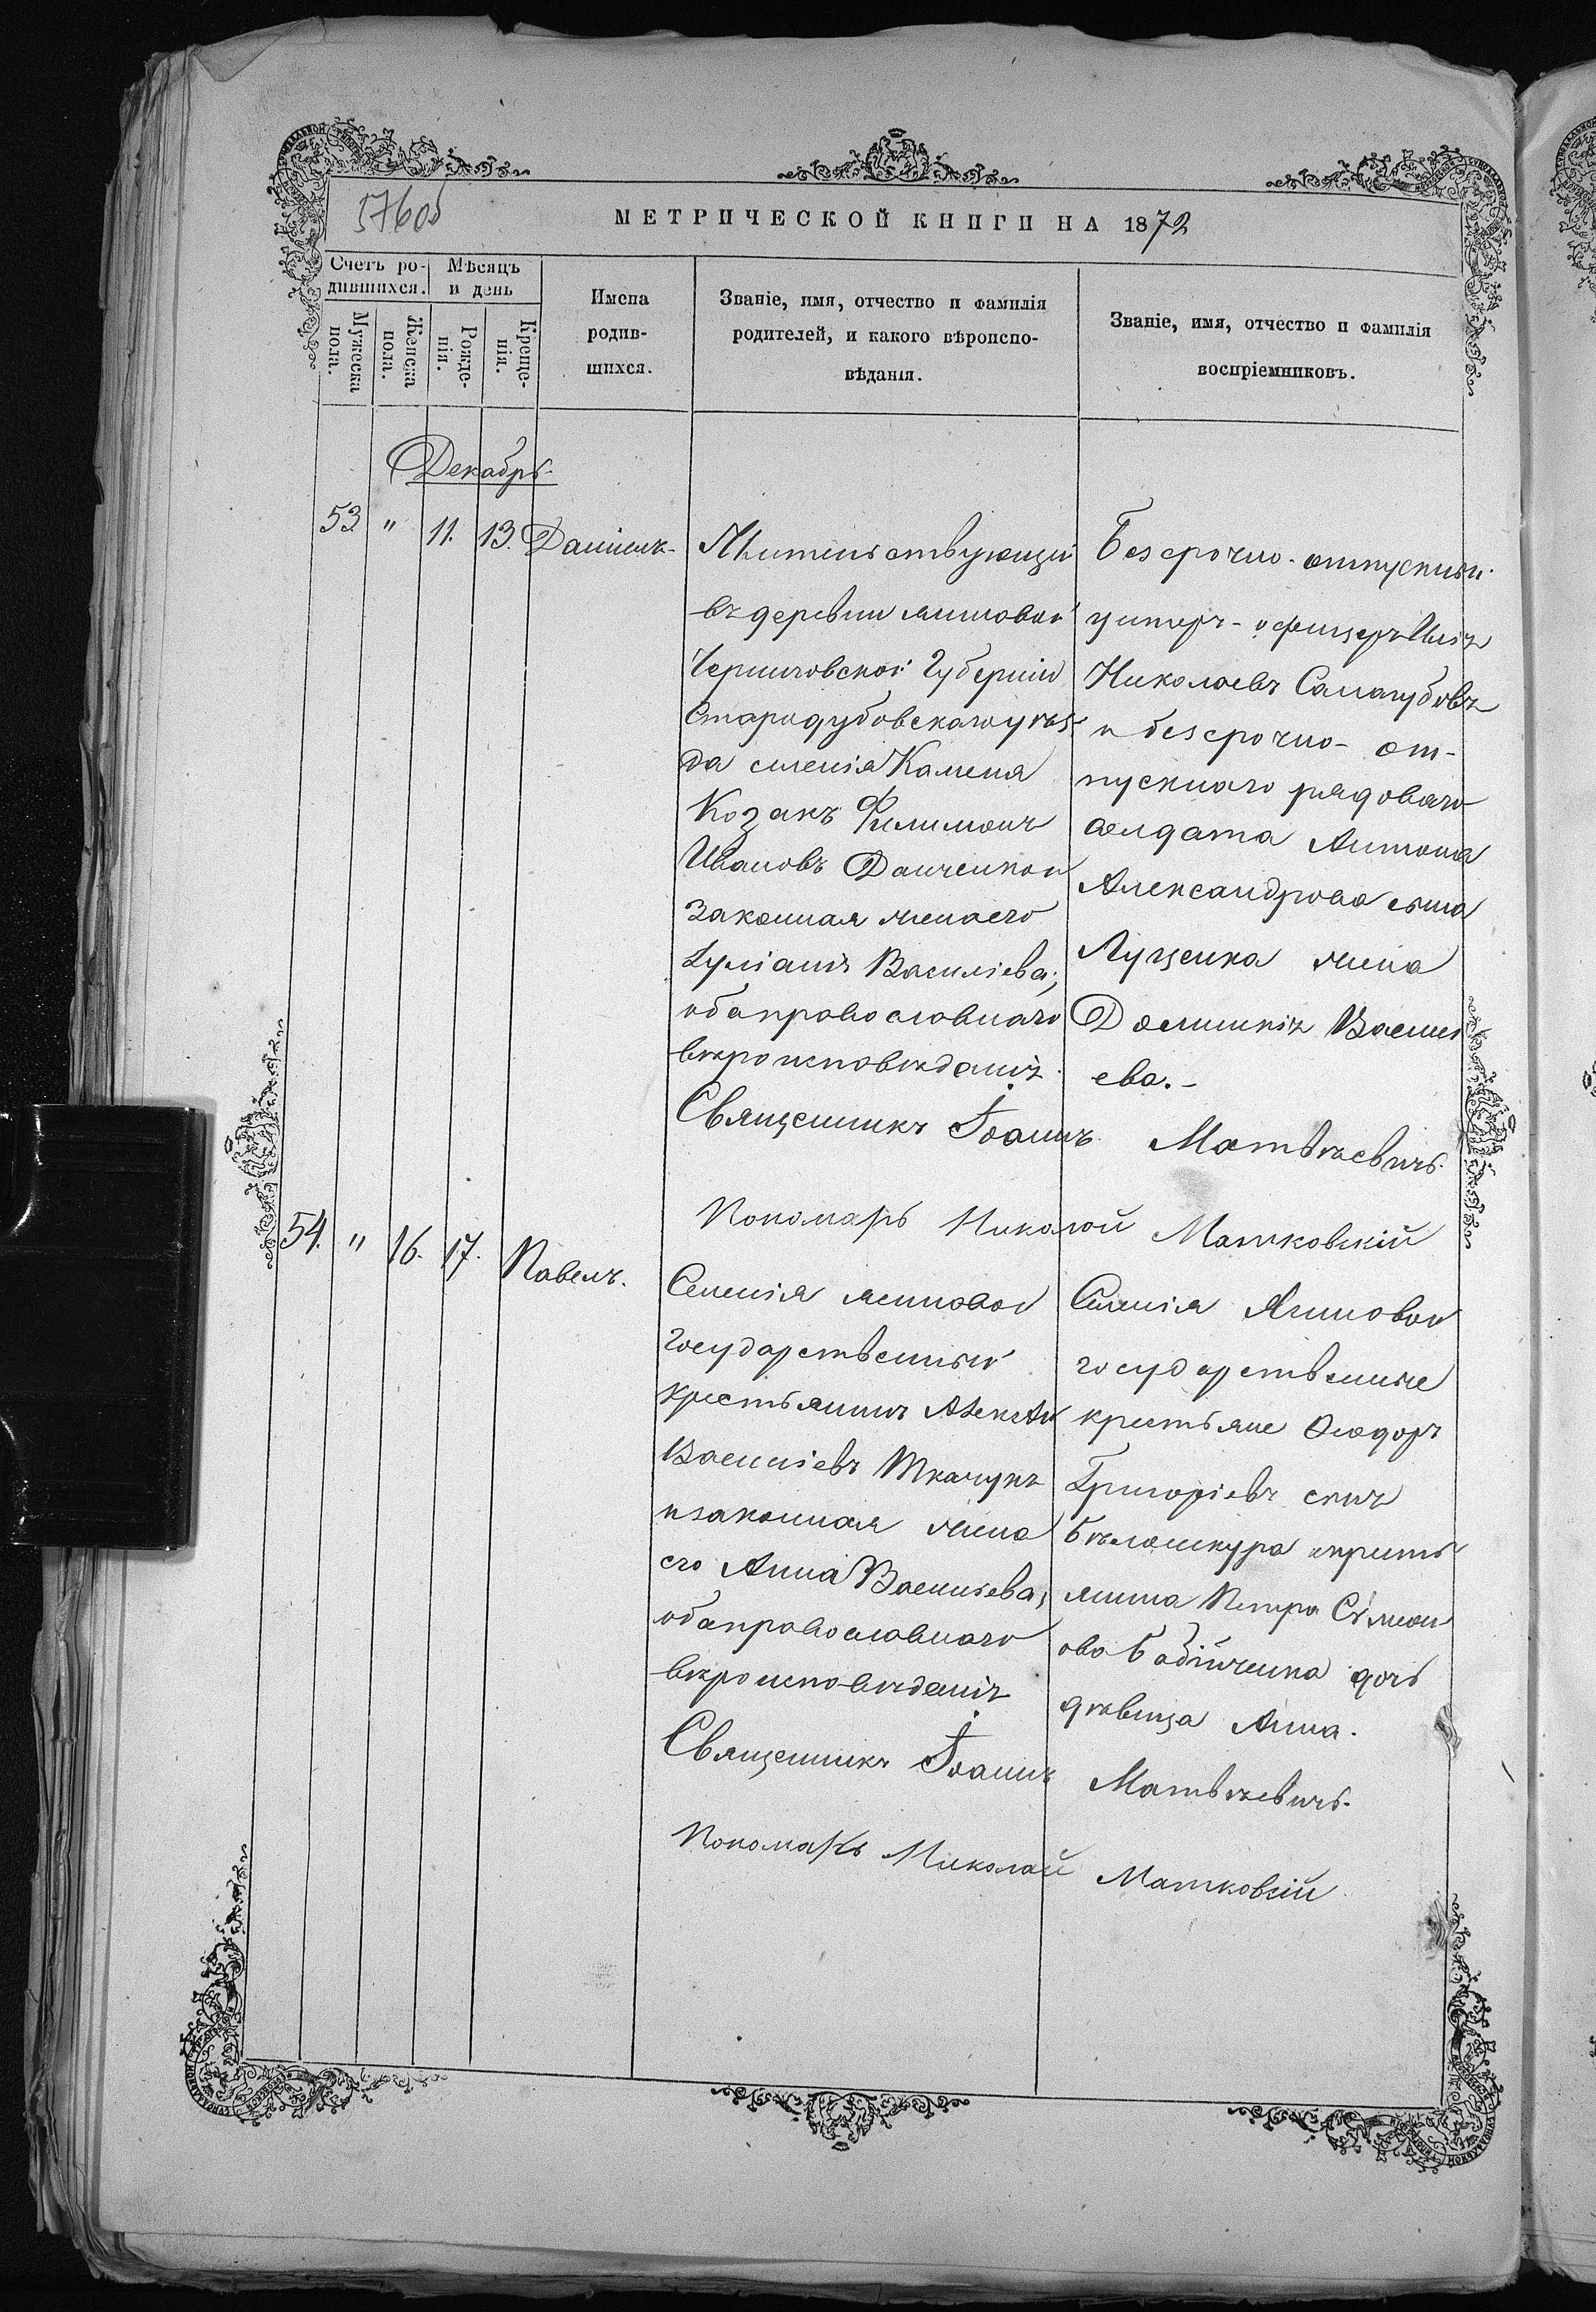 576об
МЕТРИЧЕСКОЙ КНИГИ НА 1872
Счетъ ро-
дившихся.
Мужеска
пола.
Женска
пола.
Мѣсяцъ
и день
Рожде-
нія.
Креще-
нія.
Имена
родив-
шихся.
Званіе, имя, отчество и фамилія
родителей, и какого вѣроиспо-
вѣданія.
Званіе, имя, отчество и фамилія
воспріемниковъ.
Декабрь
53. " 11. 13. Даніилъ
Жительствующій
въ деревни
Черниговской Губерніи
Стародубовскаго уѣз-
да селенія Каменя
Козакъ Филимонъ
Ивановъ Данченко и
законная жена его
Іуліанія Василіева;
оба православнаго
вѣроисповѣданія.
Безсрочно-отпускный
унтеръ-офицеръ Илія
Николаевъ Самагубовъ
и безсрочно-от-
пускнаго рядоваго
солдата Антона
Александрова сына
Луценка жена
Доминікія Васили
ева.-
Священникъ Іоаннъ Матвѣевичъ.
Пономарь Николай Матковскій
54. " 16. 17. Павелъ.
Селенія
Государственный
крестьянинъ Алексѣй
Василіевъ Ткачукъ
и законная жена
его Анна Василіева;
оба православнаго
вѣроисповѣданія.
Селенія
государственные
крестьяне Ѳеодоръ
Григоріевъ сынъ
Бѣлошкура и кресть
янина Петра Симеон
ова Бабійченка дочь
дѣвица Анна.
Священникъ Іоаннъ Матвѣевичъ.
Пономарь Николай Матковскій